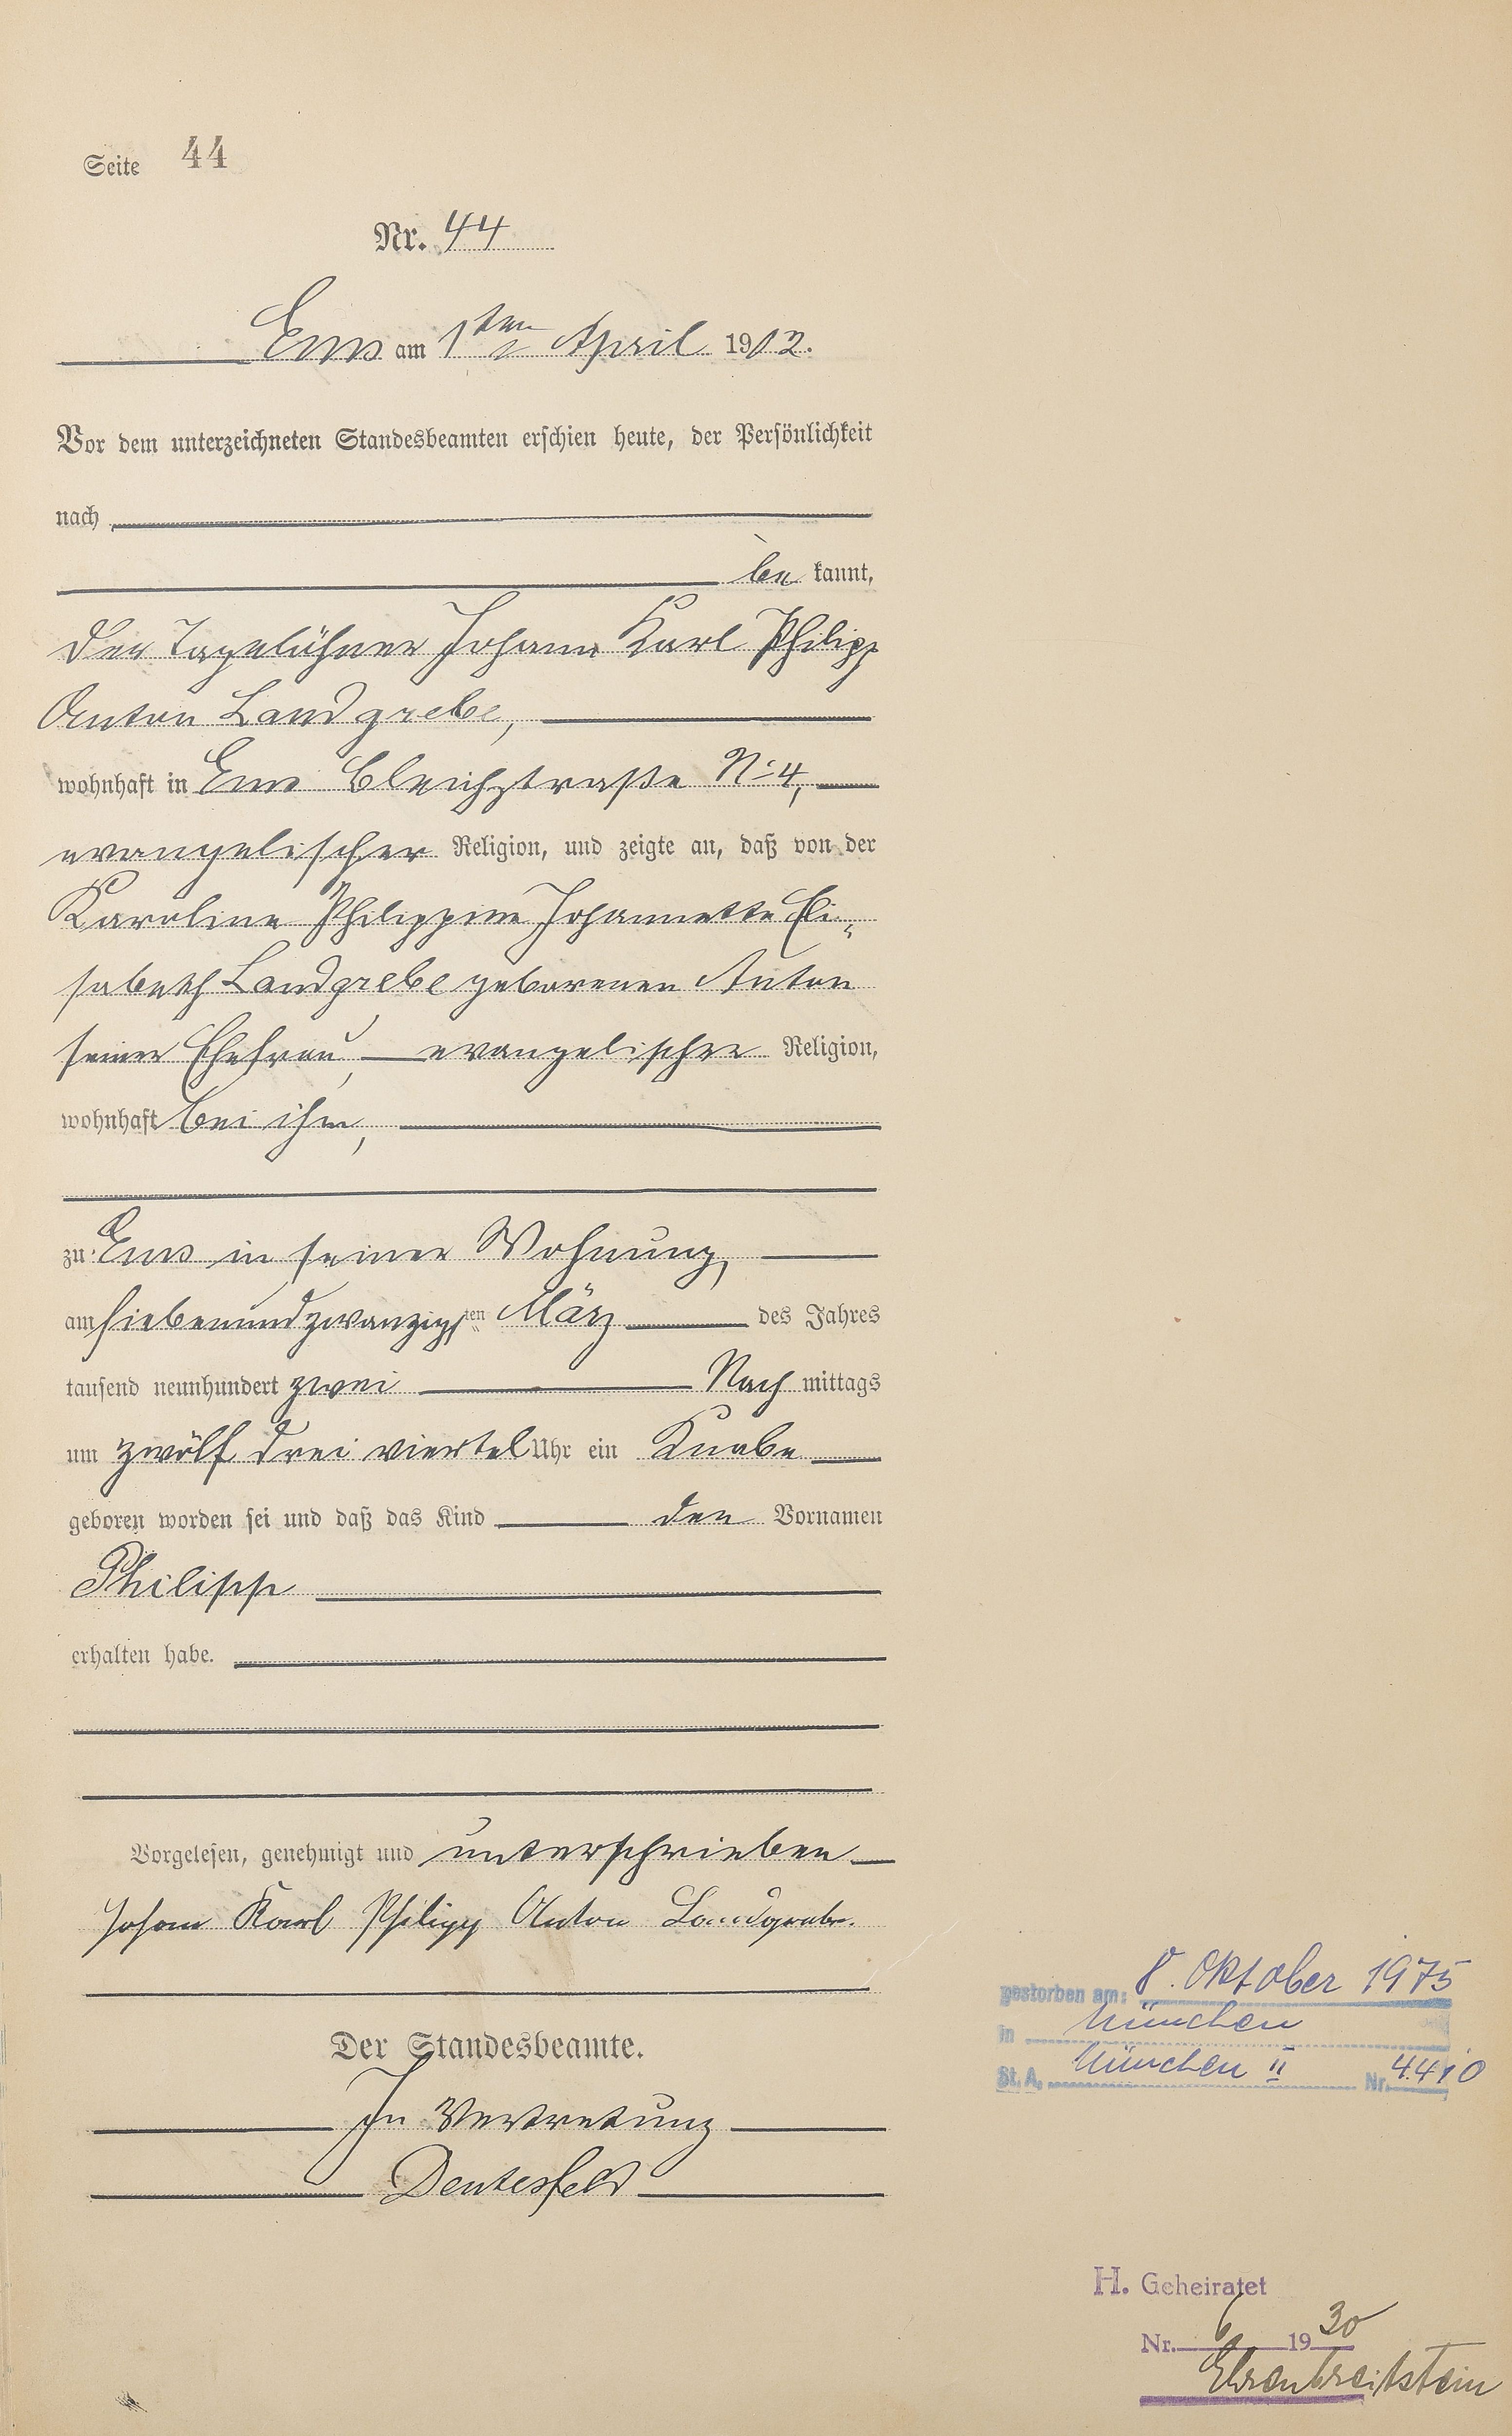 Seite 44
Nr. 44
Ems am 1ten April 1902.
Vor dem unterzeichneten Standesbeamten erschien heute, der Persönlichkeit
nach
be kannt,
der Tagelöhner Johann Karl Philipp
Anton Landgrebe,
wohnhaft in Ems Bleichstraße No 4,
evangelischer Religion, und zeigte an, daß von der
Karoline Philippine Johannette Eli-
sabeth Landgrebe geborenen Anton
seiner Ehefrau, evangelischer Religion,
wohnhaft bei ihm,
zu Ems in seiner Wohnung,
am siebenundzwanzigsten März des Jahres
tausend neunhundert zwei Nach mittags
um zwölf drei viertel Uhr ein Knabe
geboren worden sei und daß das Kind den Vornamen
Philipp
erhalten habe.
Vorgelesen, genehmigt und unterschrieben
Johann Karl Philipp Anton Landgrebe.
Der Standesbeamte.
In Vertretung
Dentesfeld
gestorben am: 8. Oktober 1975
in München
St. A. München II Nr. 4410
H. Geheiratet
Nr. 6 1930
Ehrenbreitstein